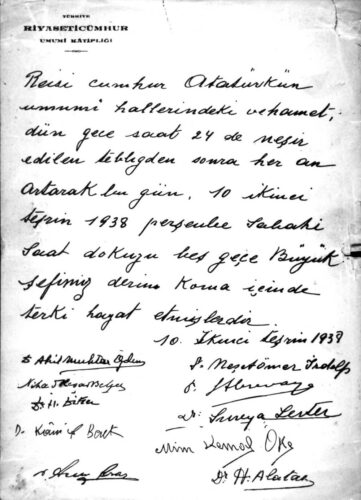 TÜRKİYE
RİYASETİCÜMHUR
UMUMİ KÂTİPLİĞİ
Reisi cumhur Atatürkün
umumî hallerindeki vehamet,
dün gece saat 24 de neşir
edilen tebliğden sonra her an
artarak bu gün, 10 ikinci
teşrin 1938 perşenbe sabahı
saat dokuzu beş geçe Büyük
şefimiz derin koma içinde
terki hayat etmişlerdir.
10. İkinci teşrin 1938
Dr. Akil Muhtar Özden
Dr. Neşetömer İrdelp
Dr.
Dr.
Dr. Süreya Serter
Mim Kemal Öke
Dr. H. Alataş